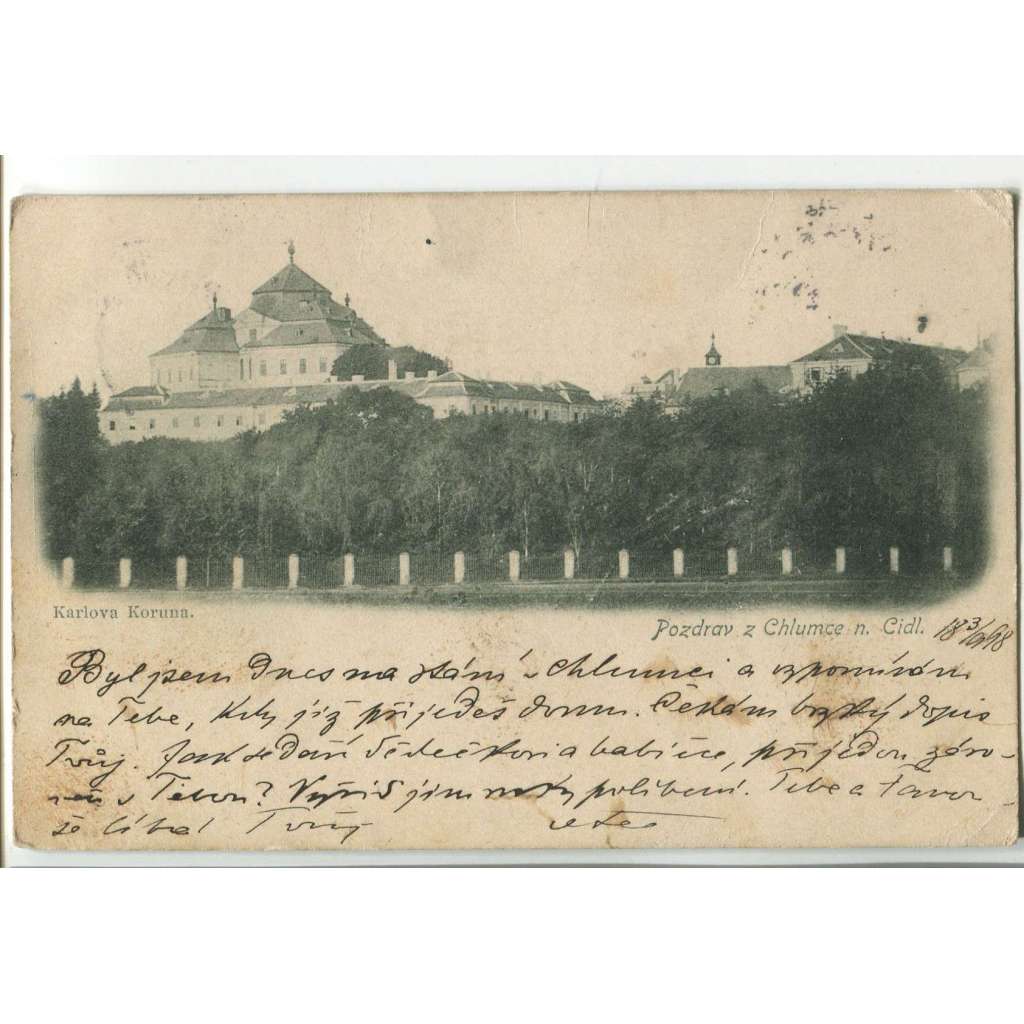 Karlova Koruna.
Pozdrav z Chlumce n. Cidl.
Byl jsem Dnes na v Chlumci a vzpomínám
na Tebe, Kdy již přijedeš domu. Čekám brzký dopis
Tvůj. Jak se daří Dědečkovi a babičce, přijedou záro-
s Tebou? Vyřiď jim políbení. Tebe a
se líbá Tvůj otec